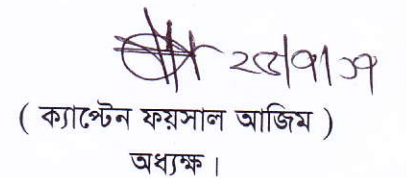 ২৫/৭/১৭
( ক্যাপ্টেন ফয়সাল আজিম )
অধ্যক্ষ ।